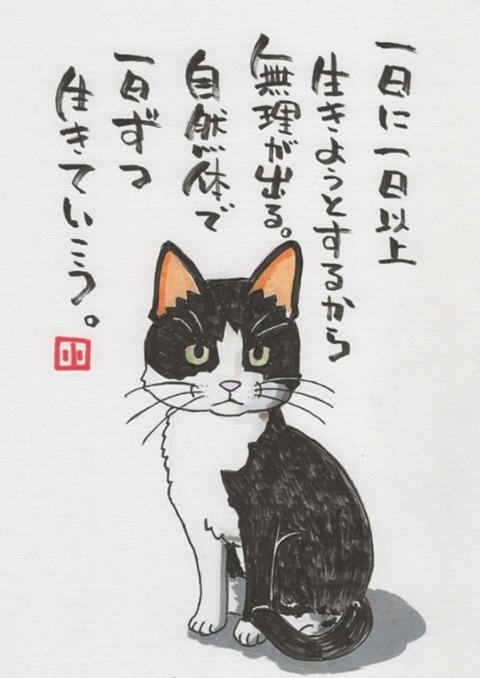 一日に一日以上
生きようとするから
無理が出る。
自然体で
一日ずつ
生きていこう。
小